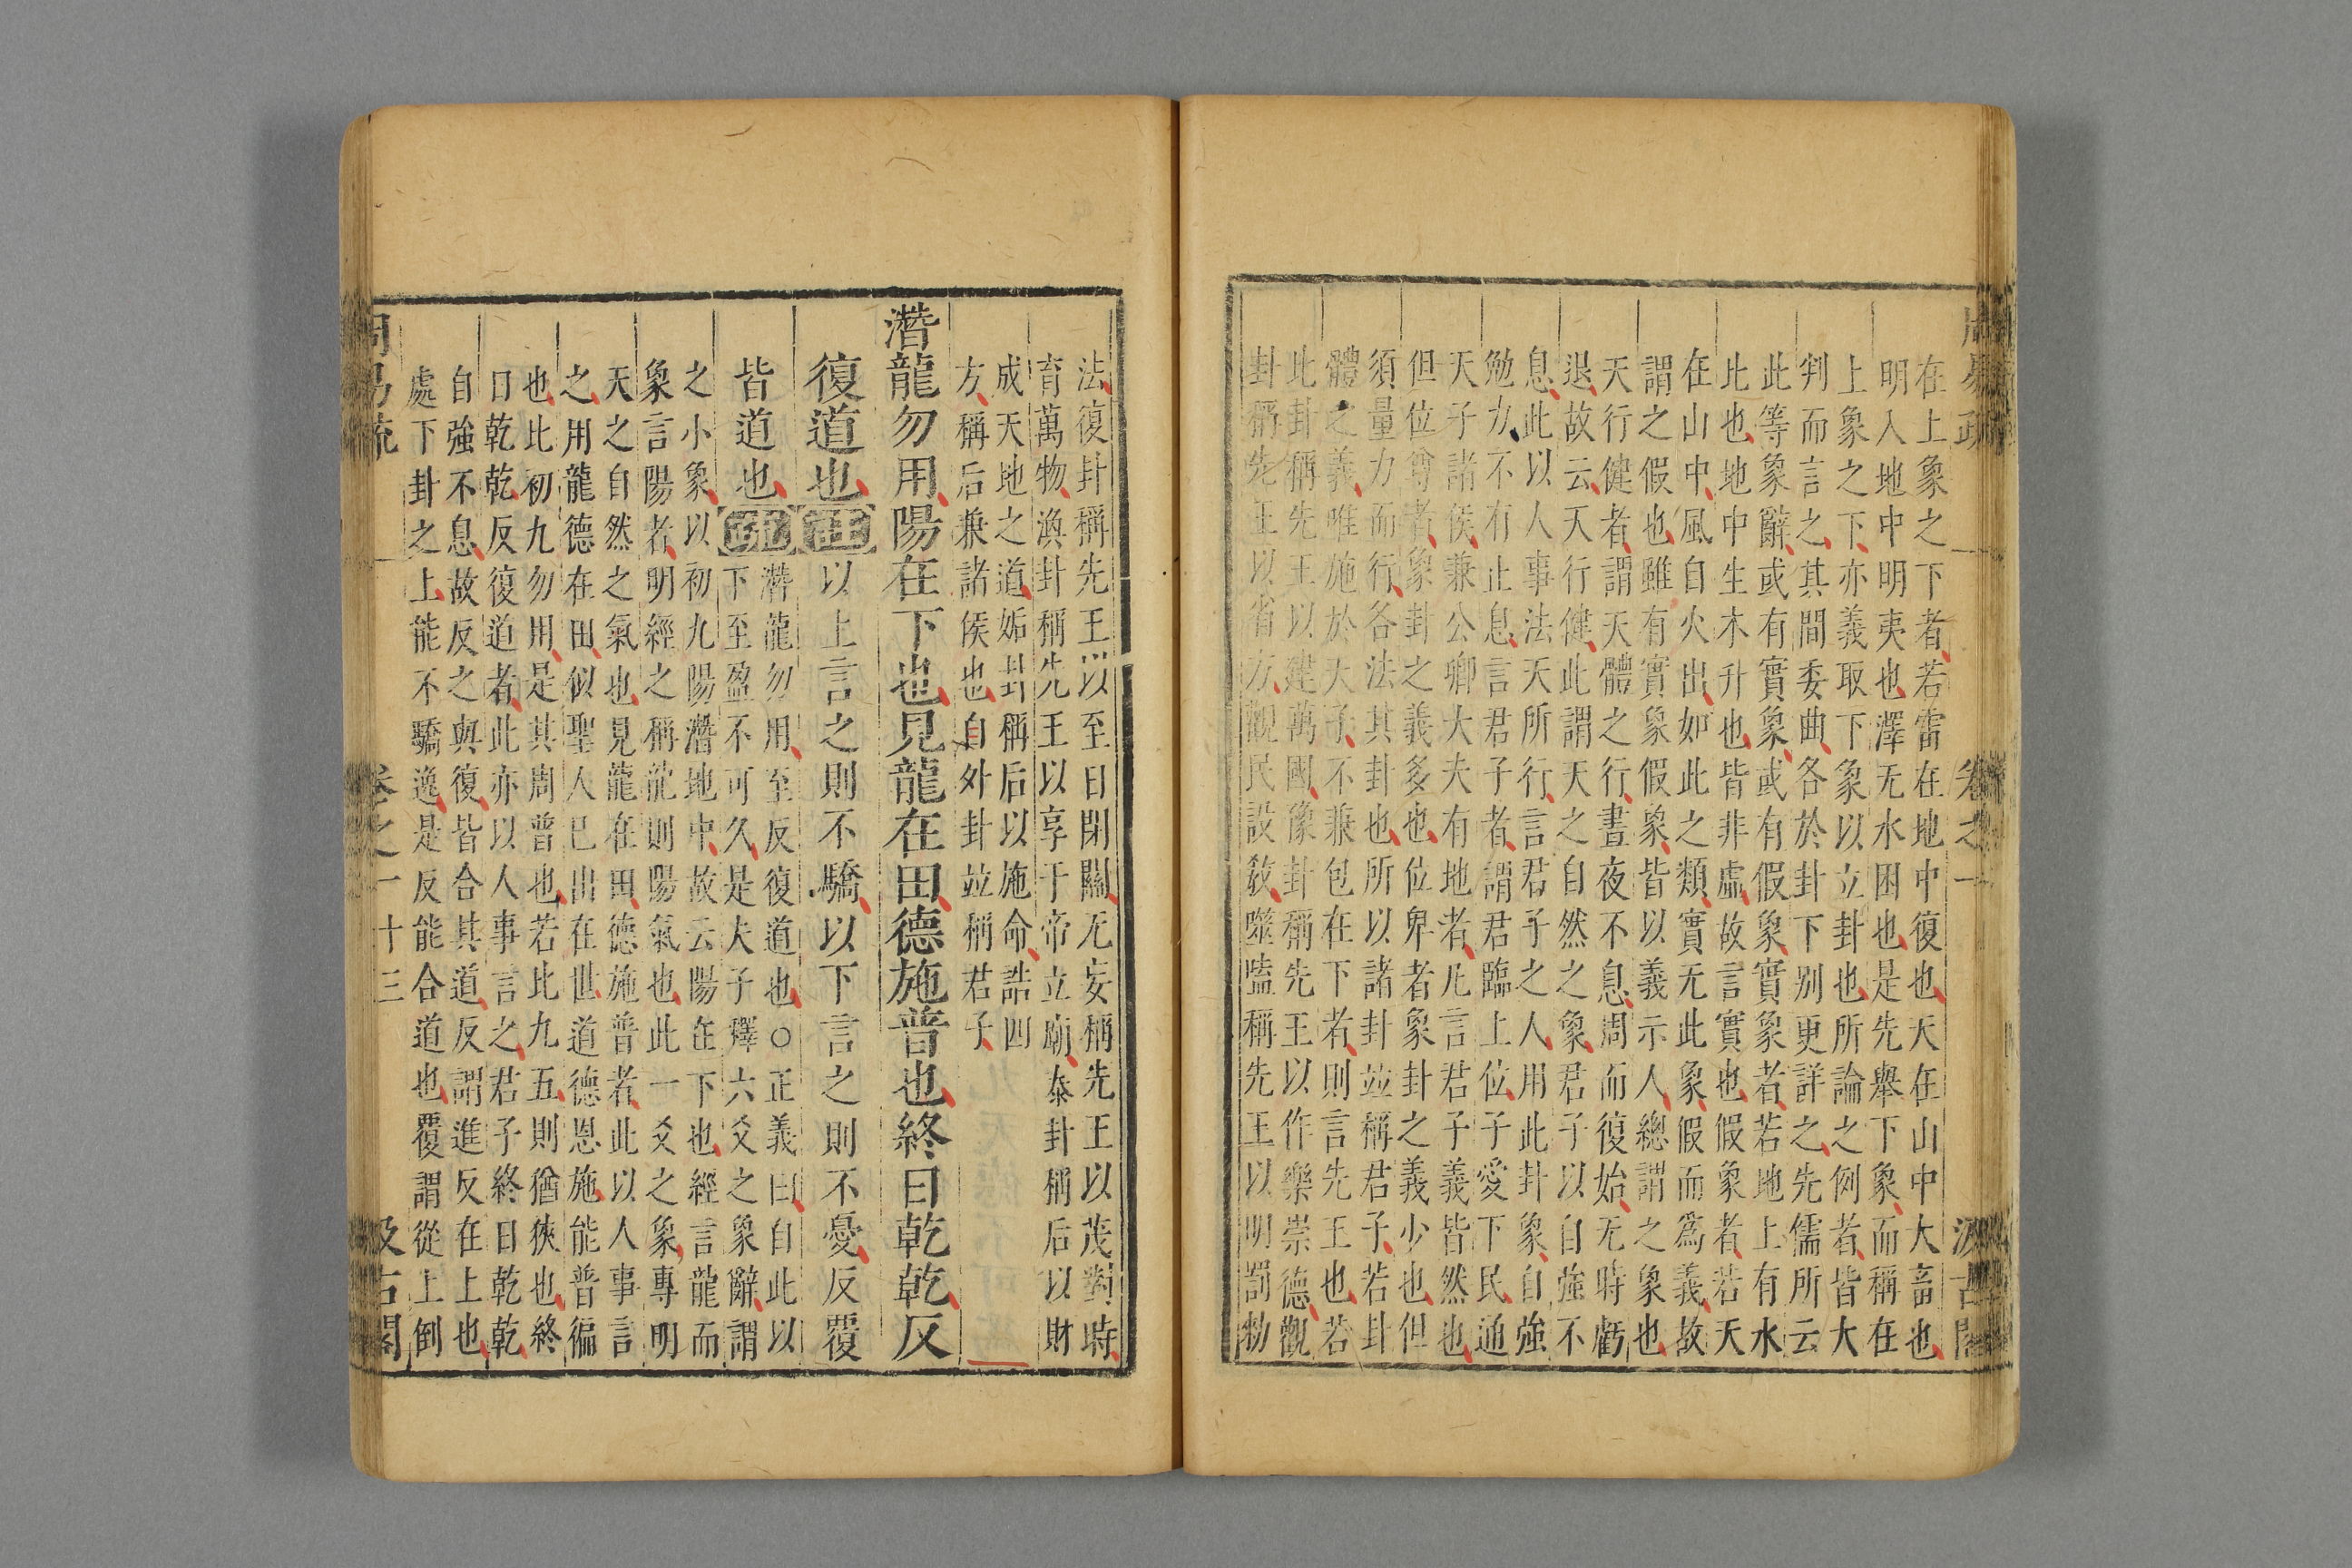 周易疏 卷之一 汲古閣
在上象之下者若雷在地中復也天在山中大畜也
明入地中明夷也澤无水困也是先舉下象而稱在
上象之下亦義取下象以立卦也所論之例者皆大
判而言之其間委曲各於卦下別更詳之先儒所云
此等象辭或有實象或有假象實象者若地上有水
此也地中生木升也皆非虛故言實也假象者若天
在山中風自火出如此之類實无此象假而爲義故
謂之假也雖有實象假象皆以義示人總謂之象也
天行健者謂天體之行晝夜不息周而復始无時虧
退故云天行健此謂天之自然之象君子以自強不
息此以人事法天所行言君子之人用此卦象自強
勉力不有止息言君子者謂君臨上位子愛下民通
天子諸侯兼公卿大夫有地者凡言君子義皆然也
但位尊者象卦之義多也位卑者象卦之義少也但
須量力而行各法其卦也所以諸卦竝稱君子若卦
體之義唯施於天子不兼包在下者則言先王也若
此卦稱先王以建萬國豫卦稱先王以作樂崇德觀
卦稱先王以省方觀民設敎噬嗑稱先王以明罰勑
法復卦稱先王以至日閉關无妄稱先王以茂對時
育萬物渙卦稱先王以享于帝立廟泰卦稱后以財
成天地之道姤卦稱后以施命誥四
方稱后兼諸侯也自外卦竝稱君子
潛龍勿用陽在下也見龍在田德施普也終日乾乾反
復道也註以上言之則不驕以下言之則不憂反覆
皆道也疏潛龍勿用至反復道也○正義曰自此以
下至盈不可久是夫子釋六爻之象辭謂
之小象以初九陽潛地中故云陽在下也經言龍而
象言陽者明經之稱龍則陽氣也此一爻之象專明
天之自然之氣也見龍在田德施普者此以人事言
之用龍德在田似聖人已出在世道德恩施能普徧
也此初九勿用是其周普也若比九五則猶狹也終
日乾乾反復道者此亦以人事言之君子終日乾乾
自強不息故反之與復皆合其道反謂進反在上也
處下卦之上能不驕逸是反能合道也覆謂從上倒
周易疏 卷之一 十三 汲古閣